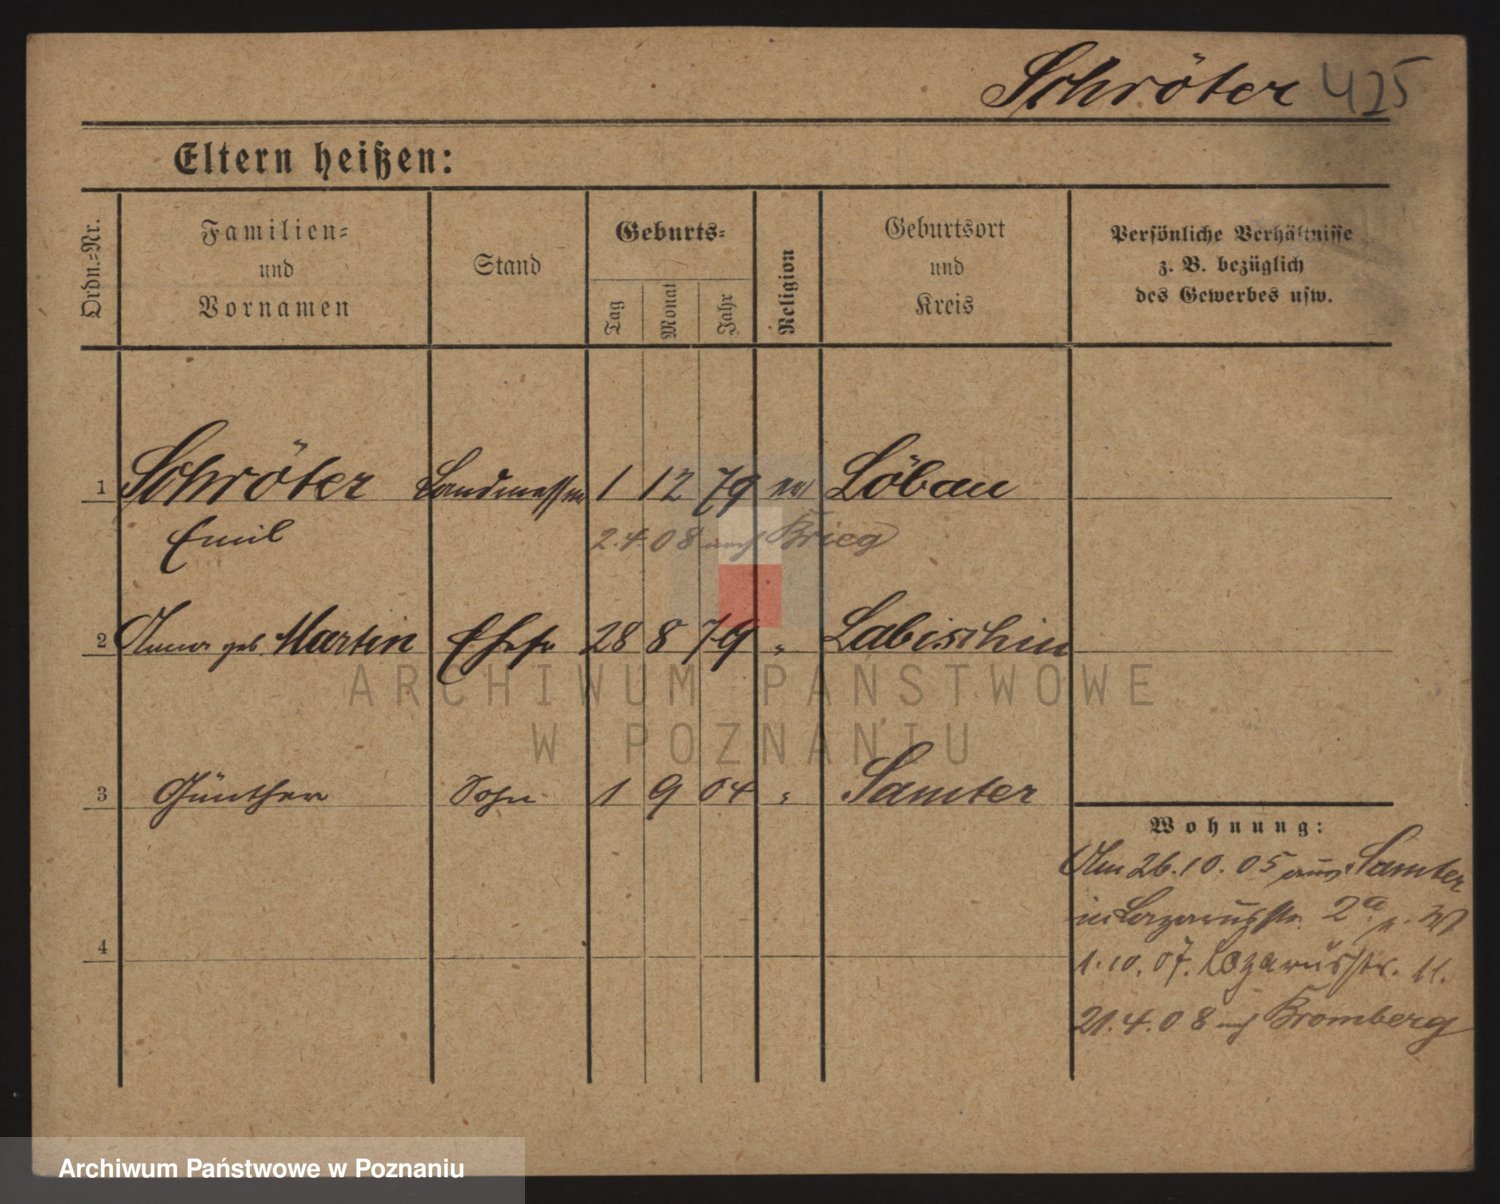 Schröter 425
Eltern heißen:
Ordn.=Nr.
Familien=
und
Vornamen
Stand
Geburts=
Tag
Monat
Jahr
Religion
Geburtsort
und
Kreis
Persönliche Verhältnisse
z. B. bezüglich
des Gewerbes usw.
1 Schröter Landmesser 1 12 79 ev Löbau
Emil 2.4.08 nach Brieg
2 Anna geb. Martin Ehefr 28 8 79 " Labischin
3 Günther Sohn 1 9 04 " Samter
4
Wohnung:
Am 26.10.05 aus Samter
in Lazarusstr. 2a p. W
1.10.07. Lazarusstr. 11.
21.4.08 nach Bromberg
ARCHIWUM PAŃSTWOWE
W POZNANIU
Archiwum Państwowe w Poznaniu